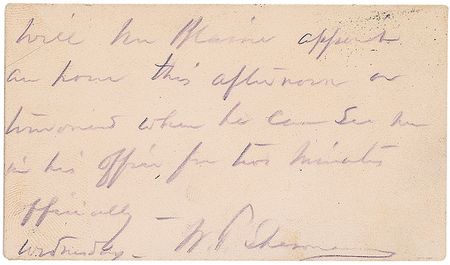 Will Mr Blaine appoint
an hour this afternoon or
tomorrow when he can see me
in his office for two minutes
officially —
Wednesday — W. T. Sherman